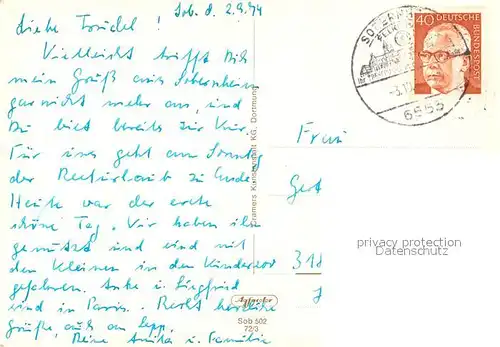 Sob. d. 2.9.74
Liebe Trudel!
Vielleicht trifft Dich
mein Gruß aus Sobernheim
gar nicht mehr an, und
Du bist bereits zur Kur.
Für uns geht am Sonntag
der Resturlaub zu Ende
Heute war der erste
schöne Tag. Wir haben ihn
genützt und sind mit
den Kleinen in den
gefahren. Anke u. Siegfried
sind in Paris. Recht herzliche
Grüße, auch an Sepp.
Deine Anita u. Familie
Cramers Kunstanstalt KG, Dortmund
Sob 502
72/3
SOBERNHEIM
6553
40 DEUTSCHE BUNDESPOST
Frau
Gert
318
privacy protection
Datenschutz